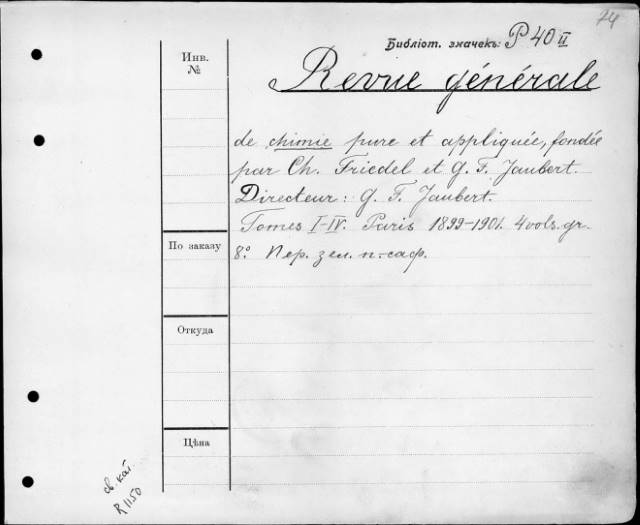 74
Библіот. значекъ: P 40 II
Инв.
№
Revue générale
de chimie pure et appliquée, fondée
par Ch. Friedel et G. F. Jaubert.
Directeur: G. F. Jaubert.
Tomes I-IV. Paris 1899-1901. 4 vols. gr.
8.° Пер. зел. п.-саф.
По заказу
Откуда
Цѣна
св. кат.
R 1150